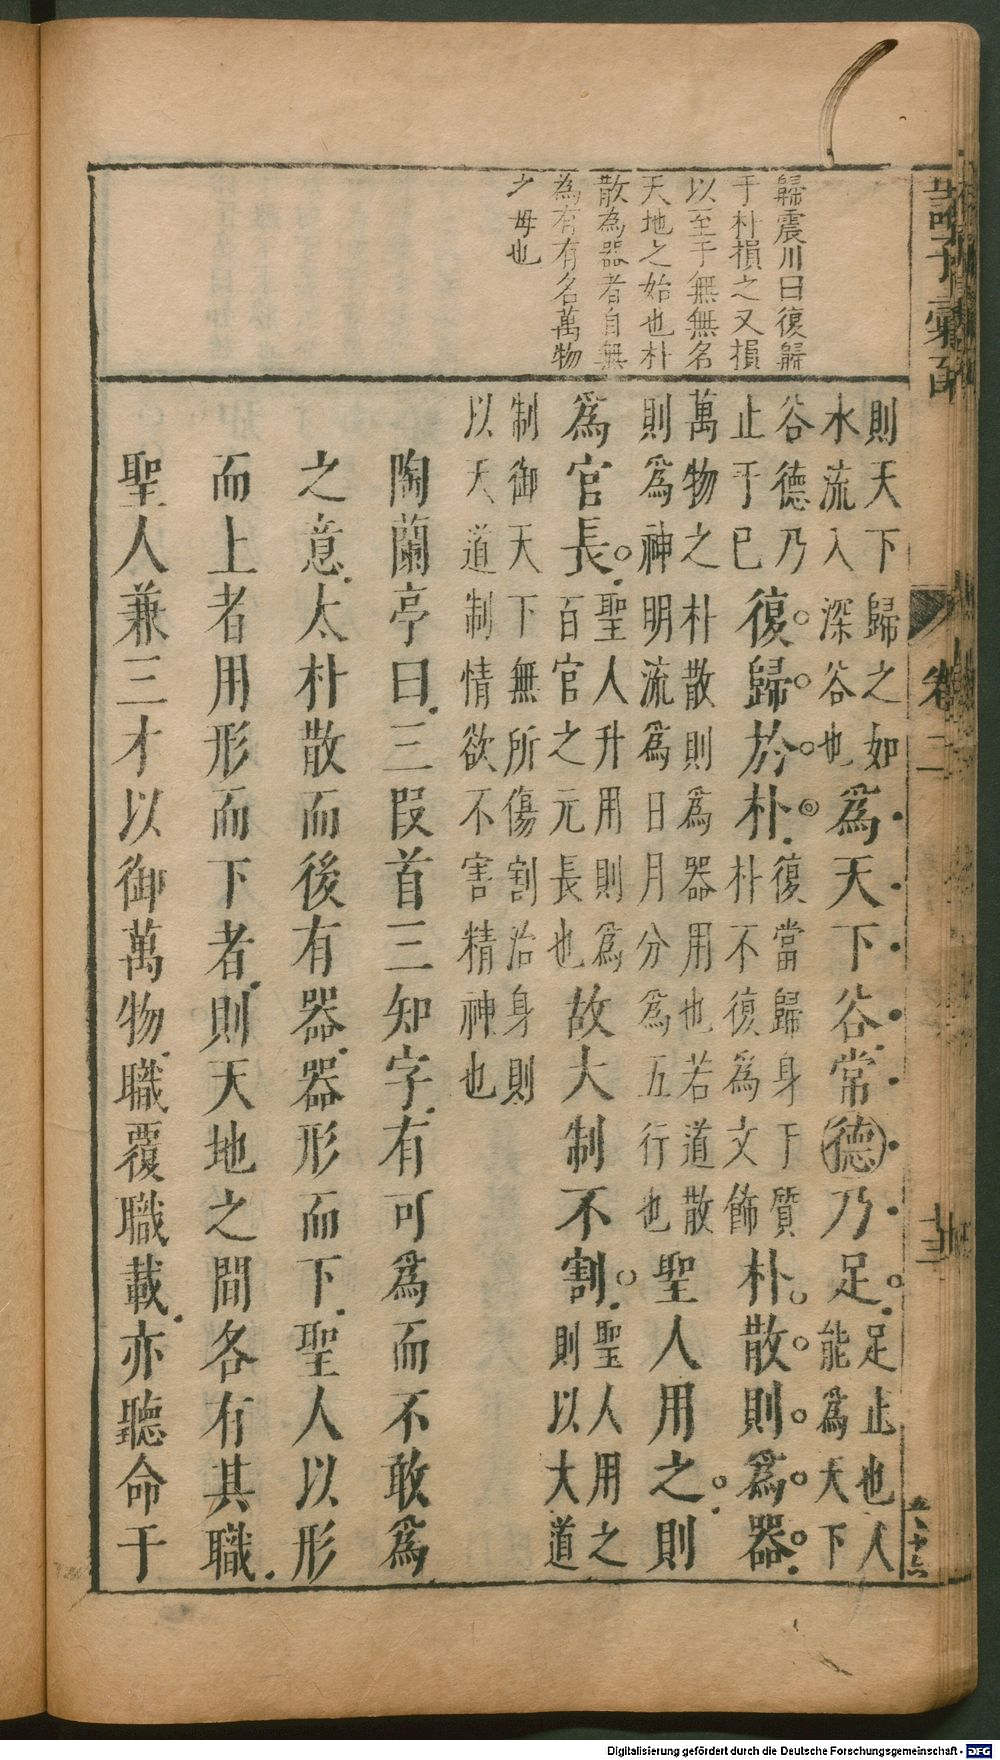 歸震川曰復歸
于朴損之又損
以至于無無名
天地之始也朴
散為器者自無
為有有名萬物
之母也
則天下歸之如
水流入深谷也
爲天下谷常德乃足
足止也人
能爲天下
谷德乃
止于已
復歸於朴
復當歸身于質
朴不復爲文飾
朴散則爲器
萬物之朴散則爲器用也若道散
則爲神明流爲日月分爲五行也
聖人用之則
爲官長
聖人升用則爲
百官之元長也
故大制不割
聖人用之
則以大道
制御天下無所傷割治身則
以天道制情欲不害精神也
陶蘭亭曰三叚首三知字有可爲而不敢爲
之意太朴散而後有器器形而下聖人以形
而上者用形而下者則天地之間各有其職
聖人兼三才以御萬物職覆職載亦聽命于
卷二
Digitalisierung gefördert durch die Deutsche Forschungsgemeinschaft - DFG